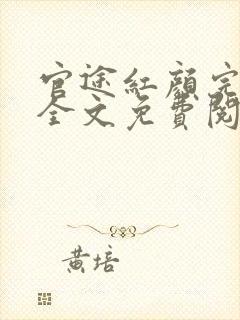 官途紅顏完
全文免費閱
黃培